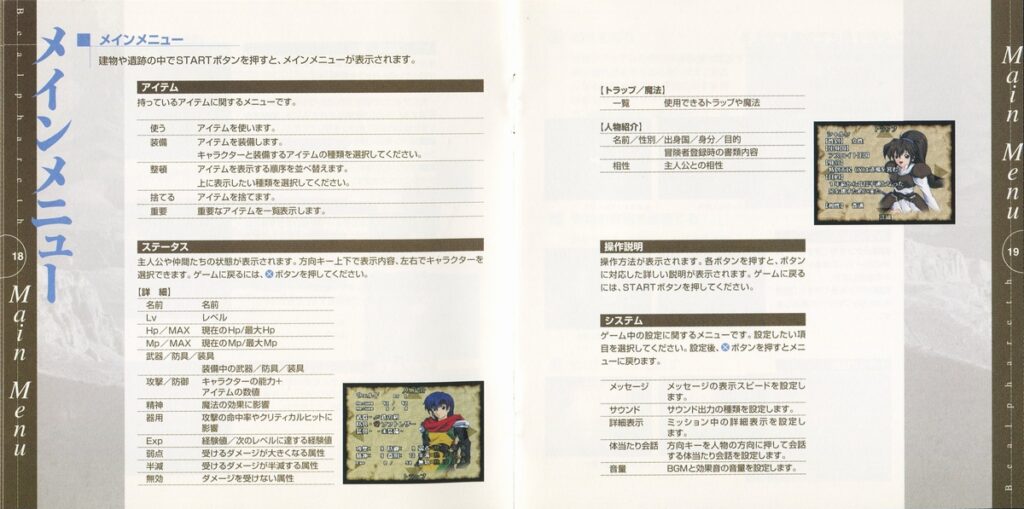 Bealphareth
メインメニュー
18
Main Menu
■ メインメニュー
建物や遺跡の中でSTARTボタンを押すと、メインメニューが表示されます。
アイテム
持っているアイテムに関するメニューです。
使う アイテムを使います。
装備 アイテムを装備します。
キャラクターと装備するアイテムの種類を選択してください。
整頓 アイテムを表示する順序を並べ替えます。
上に表示したい種類を選択してください。
捨てる アイテムを捨てます。
重要 重要なアイテムを一覧表示します。
ステータス
主人公や仲間たちの状態が表示されます。方向キー上下で表示内容、左右でキャラクターを
選択できます。ゲームに戻るには、⊗ボタンを押してください。
【詳 細】
名前 名前
Lv レベル
Hp／MAX 現在のHp/最大Hp
Mp／MAX 現在のMp/最大Mp
武器／防具／装具
装備中の武器／防具／装具
攻撃／防御 キャラクターの能力＋
アイテムの数値
精神 魔法の効果に影響
器用 攻撃の命中率やクリティカルヒットに
影響
Exp 経験値／次のレベルに達する経験値
弱点 受けるダメージが大きくなる属性
半減 受けるダメージが半減する属性
無効 ダメージを受けない属性
【トラップ／魔法】
一覧 使用できるトラップや魔法
【人物紹介】
名前／性別／出身国／身分／目的
冒険者登録時の書類内容
相性 主人公との相性
操作説明
操作方法が表示されます。各ボタンを押すと、ボタン
に対応した詳しい説明が表示されます。ゲームに戻る
には、STARTボタンを押してください。
システム
ゲーム中の設定に関するメニューです。設定したい項
目を選択してください。設定後、⊗ボタンを押すとメニュ
ーに戻ります。
メッセージ メッセージの表示スピードを設定し
ます。
サウンド サウンド出力の種類を設定します。
詳細表示 ミッション中の詳細表示を設定し
ます。
体当たり会話 方向キーを人物の方向に押して会話
する体当たり会話を設定します。
音量 BGMと効果音の音量を設定します。
Main Menu
19
Bealphareth